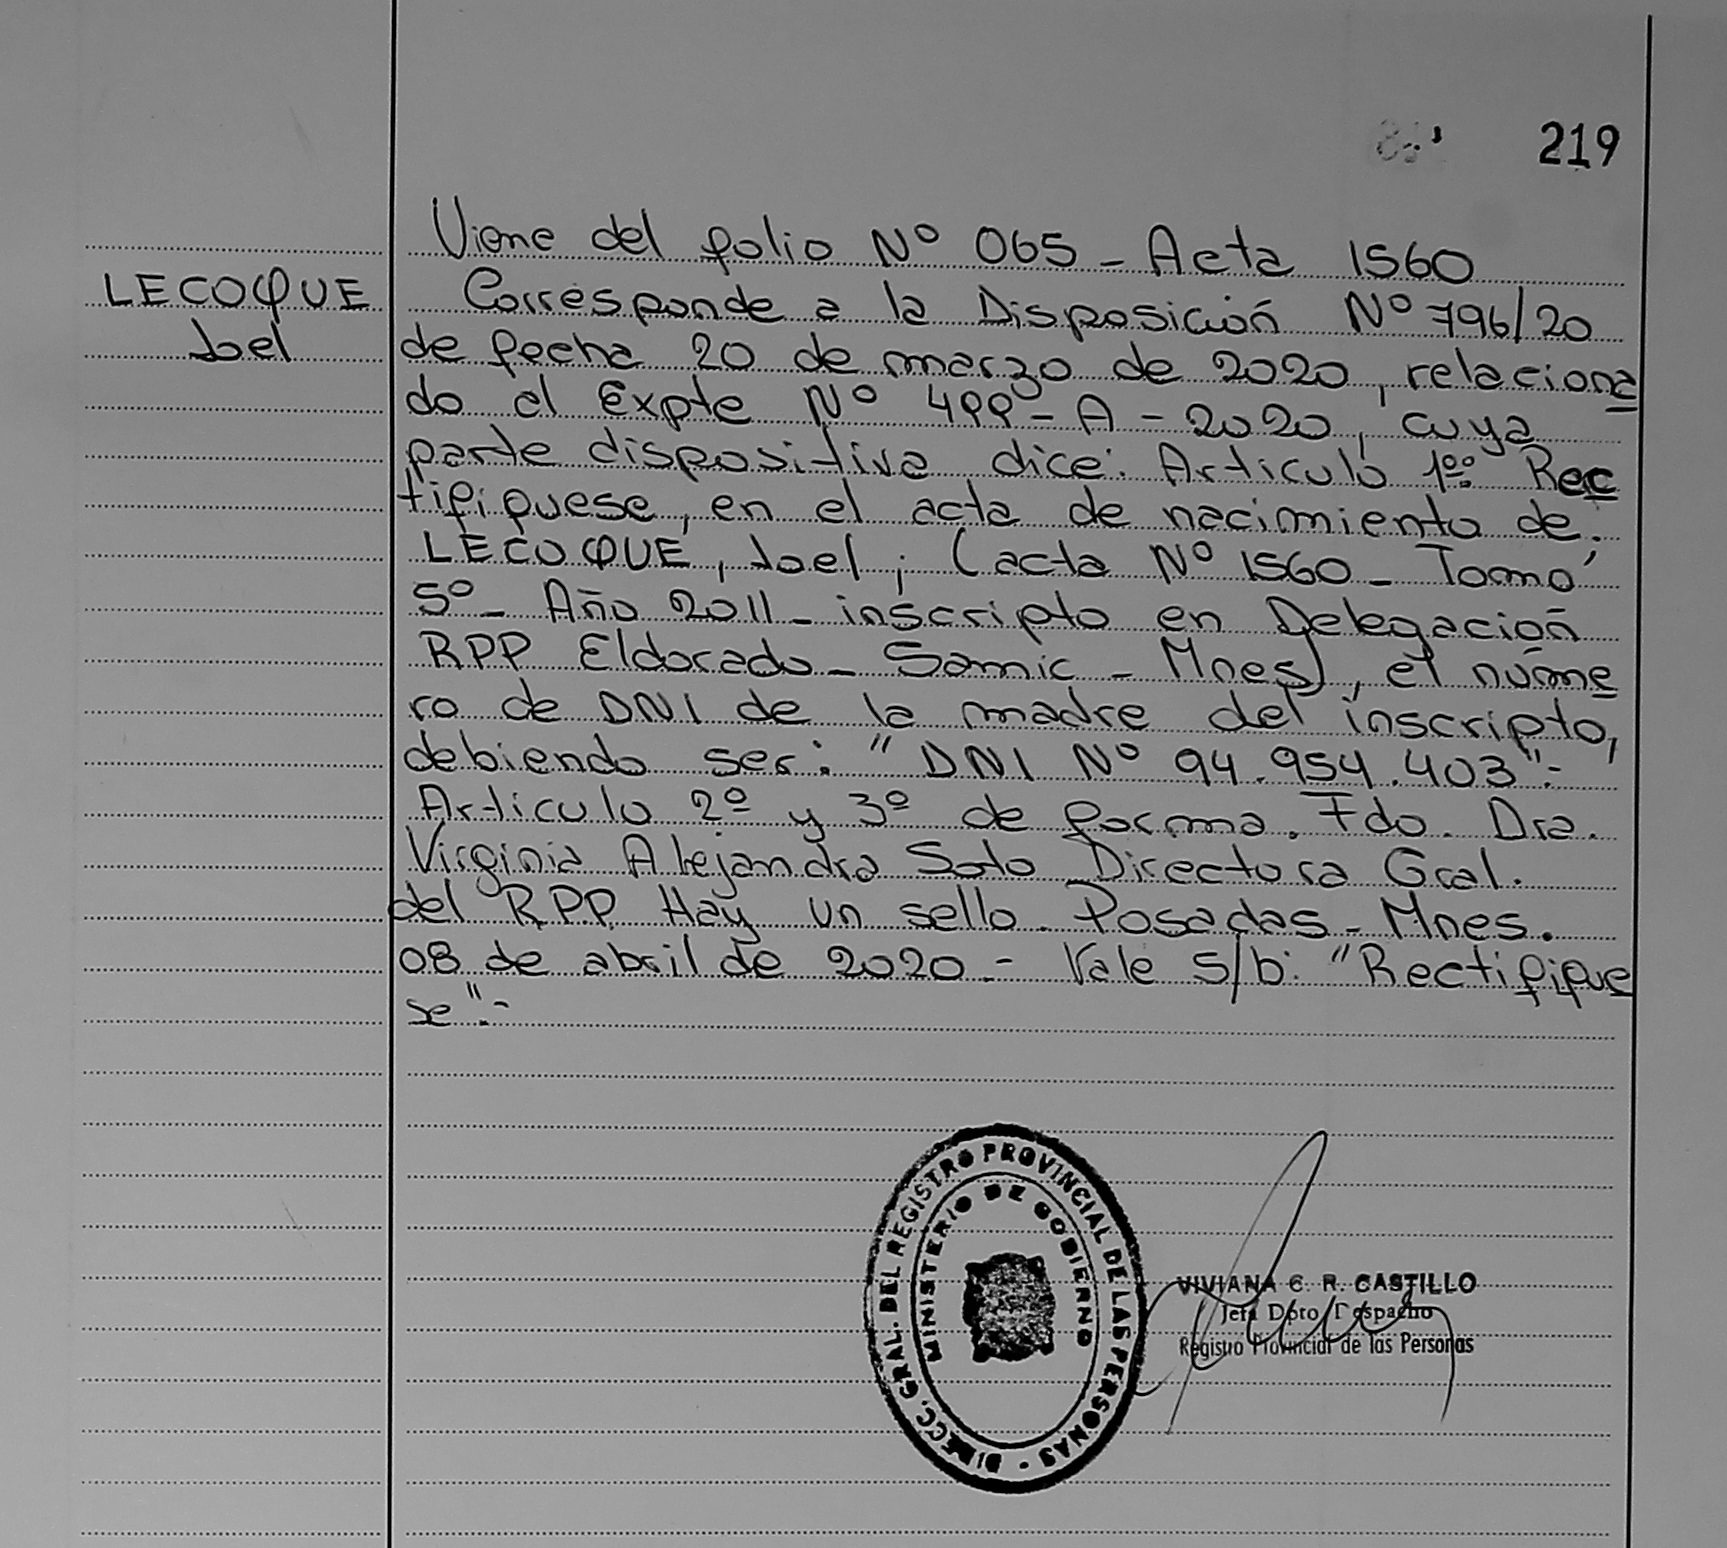 219
Viene del folio Nº 065 - Acta 1560
LECOQUE
Joel
Corresponde a la Disposición Nº 796/20
de fecha 20 de marzo de 2020, relaciona
do al Expte Nº 499 - A - 2020, cuya
parte dispositiva dice: Articulo 1º: Rec
tifiquese, en el acta de nacimiento de:
LECOQUE, Joel; (acta Nº 1560 - Tomo
5º - Año 2011 - inscripto en Delegación
RPP Eldorado - Samic - Mnes), el núme
ro de DNI de la madre del inscripto,
debiendo ser: "DNI Nº 94.954.403".-
Articulo 2º y 3º de forma. Fdo. Dra.
Virginia Alejandra Soto Directora Gral.
del RPP Hay un sello. Posadas - Mnes.
08 de abril de 2020 - Vale S/b: "Rectifique
se".-
DIRECC. GRAL. DEL REGISTRO PROVINCIAL DE LAS PERSONAS -
MINISTERIO DE GOBIERNO
VIVIANA C. R. CASTILLO
Jefa Dpto Despacho
Registro Provincial de las Personas